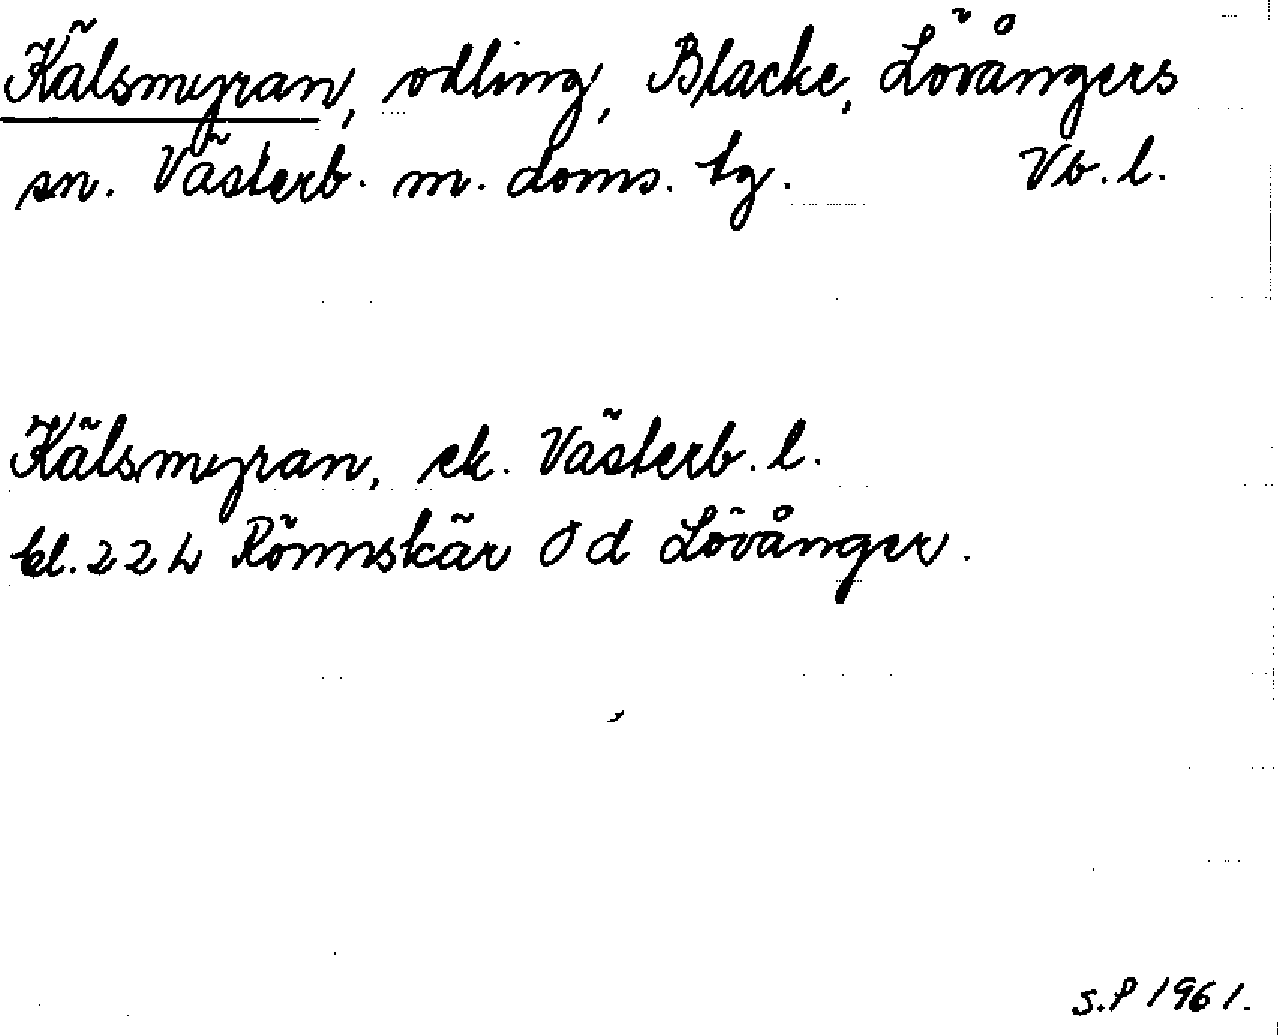 Kälsmyran, odling, Blacke, Lövångers
sn. Västerb. m. doms. tg. Vb. l.
Kälsmyran, ek. Västerb. l.
bl. 22 L Rönnskär Ö d Lövånger.
S.P 1961.